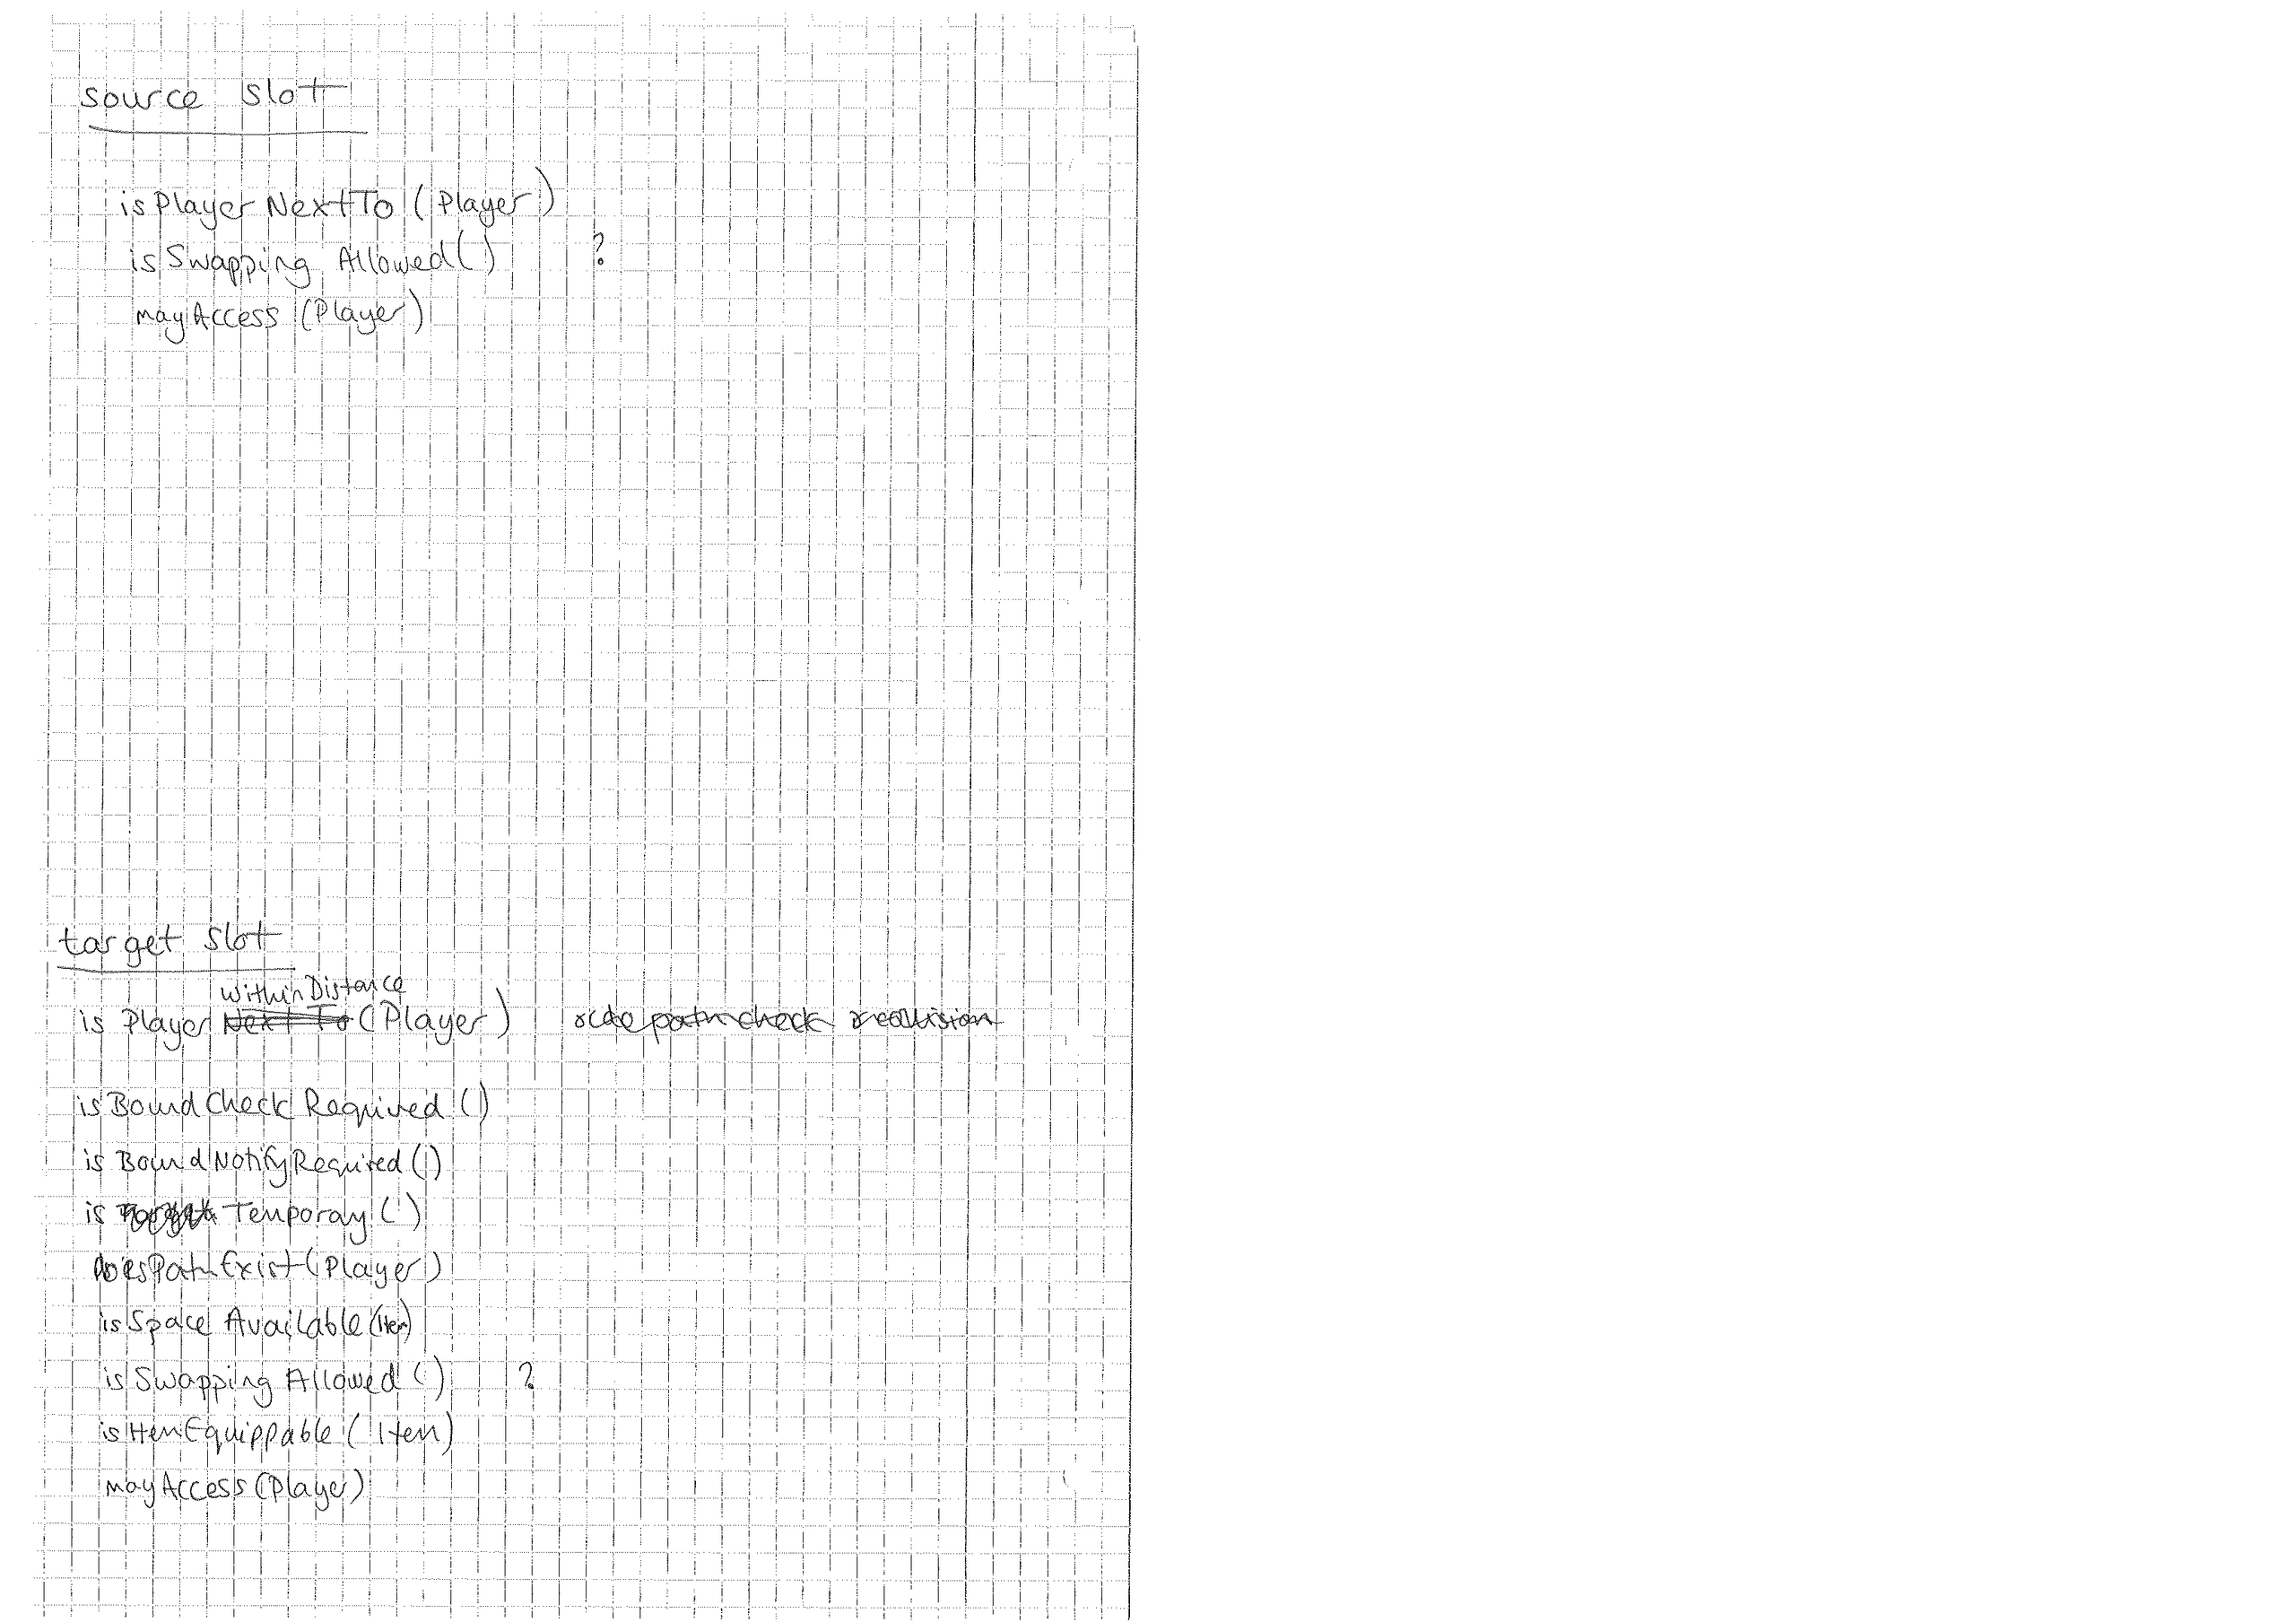 source slot
isPlayerNextTo (Player)
isSwappingAllowed() ?
mayAccess (Player)
target slot
WithinDistance
is Player Next To (Player) path check & collision
isBoundCheckRequired ()
isBoundNotifyRequired()
is Temporay ()
doesPathExist (Player)
isSpace Available (Item)
isSwapping Allowed () ?
isItemEquippable (Item)
mayAccess (Player)